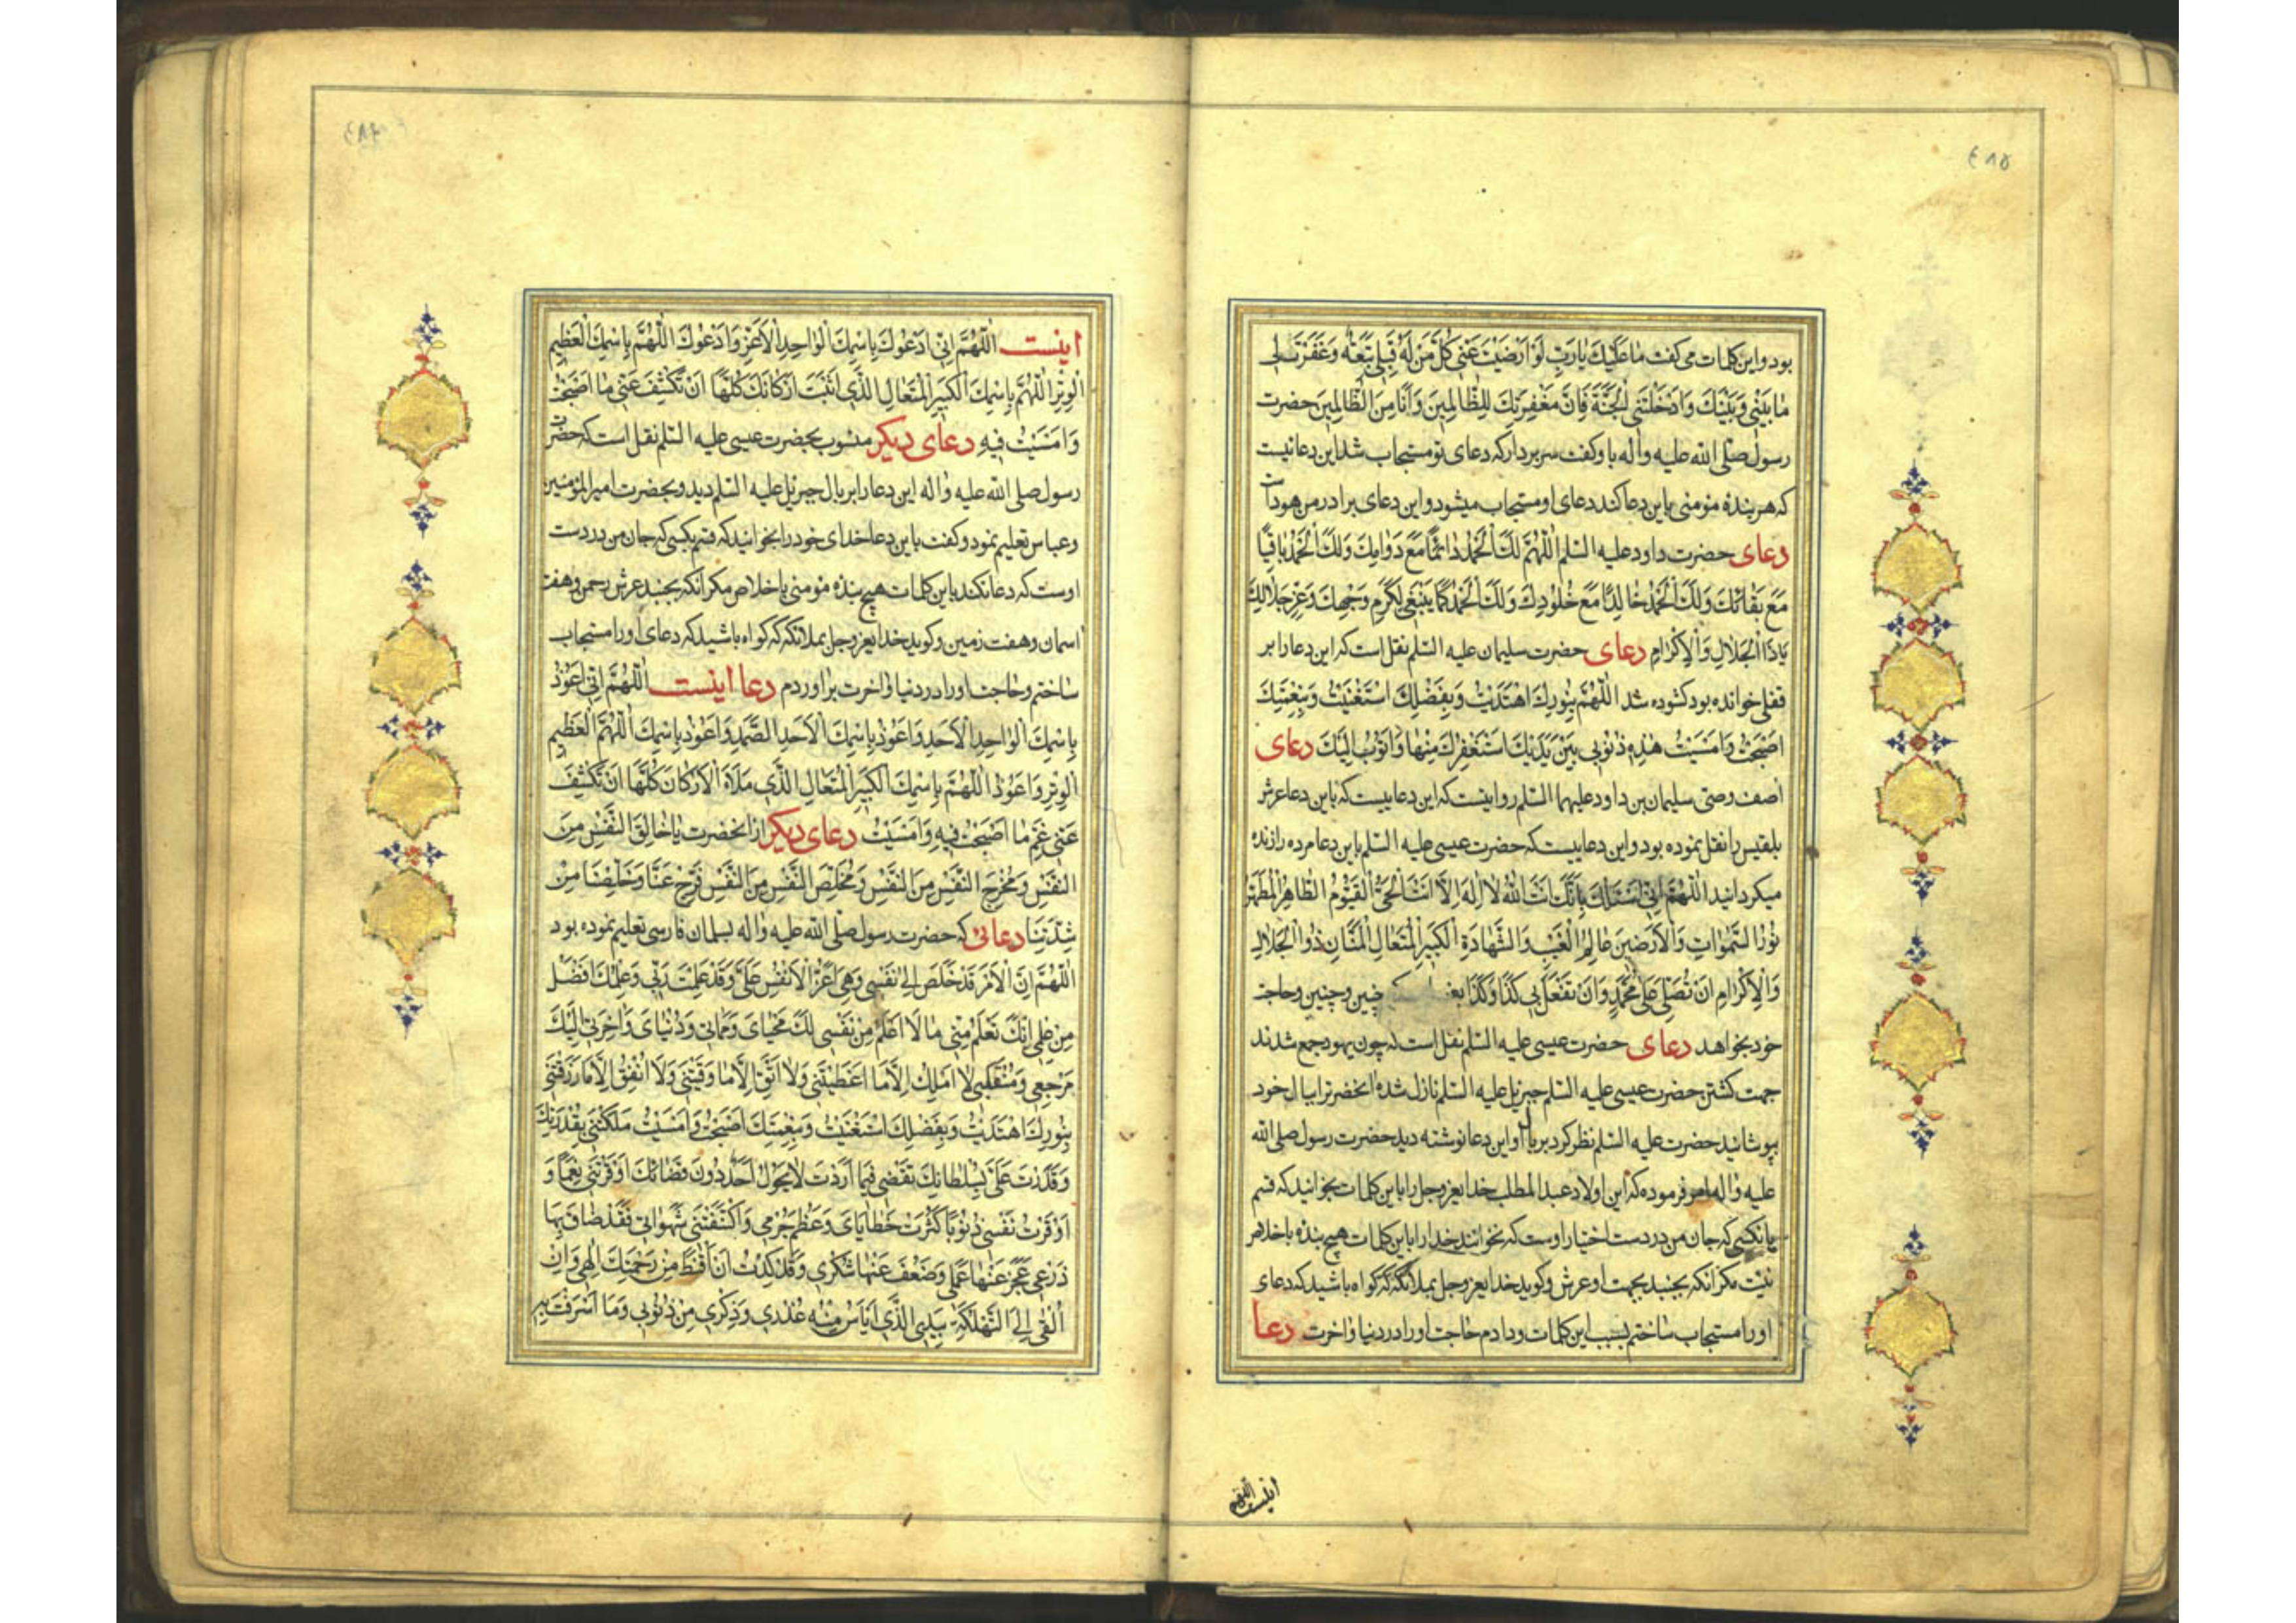 ٤٨٥
بود و این کلمات می کفت ما عَلَیْكَ یا رَبِّ لَوْ اَرْضَیْتَ عَنّی کُلَّ مَنْ لَهُ قِبَلی تَبِعَةٌ وَغَفَرْتَ لی
ما بَیْنی وَبَیْنَكَ وَاَدْخَلْتَنِی الْجَنَّةَ فَاِنَّ مَغْفِرَتَكَ لِلظّالِمینَ وَاَنَا مِنَ الظّالِمینَ حضرت
رسول صلی الله علیه واله باو کفت سر بردار که دعای تو مستجاب شد این دعائیست
که هر بندهٔ مؤمنی باین دعا کند دعای او مستجاب میشود و این دعای برادر من هود است
دعای حضرت داود علیه السلم اَللّهُمَّ لَكَ الْحَمْدُ دائِمًا مَعَ دَوامِكَ وَلَكَ الْحَمْدُ باقِیًا
مَعَ بَقائِكَ وَلَكَ الْحَمْدُ خالِدًا مَعَ خُلُودِكَ وَلَكَ الْحَمْدُ کَما یَنْبَغی لِکَرَمِ وَجْهِكَ وَعِزِّ جَلالِكَ
یا ذَا الْجَلالِ وَالْاِکْرامِ دعای حضرت سلیمان علیه السلم نقل است که این دعا را بر
قفلی خوانده بود کشوده شد اَللّهُمَّ بِنُورِكَ اهْتَدَیْتُ وَبِفَضْلِكَ اسْتَغْنَیْتُ وَبِنِعْمَتِكَ
اَصْبَحْتُ وَاَمْسَیْتُ هذِهِ ذُنُوبی بَیْنَ یَدَیْكَ اَسْتَغْفِرُكَ مِنْها وَاَتُوبُ اِلَیْكَ دعای
اصف وصی سلیمان بن داود علیهما السلم روایتست که این دعاییست که باین دعا عرش
بلقیس را نقل نموده بود و این دعاییست که حضرت عیسی علیه السلم باین دعا مرده را زنده
میکردانید اَللّهُمَّ اِنّی اَسْئَلُكَ بِاَنَّكَ اَنْتَ اللهُ لا اِلهَ اِلّا اَنْتَ الْحَیُّ الْقَیُّومُ الطّاهِرُ الْمُطَهَّرُ
نُورُ السَّمواتِ وَالْاَرَضینَ عالِمُ الْغَیْبِ وَالشَّهادَةِ الْکَبیرُ الْمُتَعالِ الْمَنّانُ ذُو الْجَلالِ
وَالْاِکْرامِ اَنْ تُصَلِّیَ عَلی مُحَمَّدٍ وَاَنْ تَفْعَلَ بی کَذا وَکَذا چنین و چنین و حاجت
خود بخواهد دعای حضرت عیسی علیه السلم نقل است که چون یهود جمع شدند
جهت کشتن حضرت عیسی علیه السلم جبریل علیه السلم نازل شده انحضرت را ببال خود
پوشانید حضرت علیه السلم نظر کرد بر بال او این دعا نوشته دید حضرت رسول صلی الله
علیه واله فرموده که این اولاد عبد المطلب خدای عز وجل را باین کلمات بخوانید که قسم
بانکسی که جان من در دست اختیار اوست که نخوانند خدا را باین کلمات هیچ بنده باخلاص
نیّت مکر انکه بجنبد بجهت او عرش و کوید خدای عز وجل بملائکه که کواه باشید که دعای
او را مستجاب ساختم بسبب این کلمات و دادم حاجت او را در دنیا واخرت دعا
اینست اللهم
اینست اَللّهُمَّ اِنّی اَدْعُوكَ بِاسْمِكَ الْواحِدِ الْاَعَزِّ وَاَدْعُوكَ اَللّهُمَّ بِاسْمِكَ الْعَظیمِ
الْوِتْرِ اَللّهُمَّ بِاسْمِكَ الْکَبیرِ الْمُتَعالِ الَّذی اَثْبَتَ اَرْکانَكَ کُلَّها اَنْ تَکْشِفَ عَنّی ما اَصْبَحْتُ
وَاَمْسَیْتُ فیهِ دعای دیکر منسوب بحضرت عیسی علیه السلم نقل است که حضرت
رسول صلی الله علیه واله این دعا را بر بال جبریل علیه السلم دید و بحضرت امیر المؤمنین
وعباس تعلیم نمود و کفت باین دعا خدای خود را بخوانید که قسم بکسی که جان من در دست
اوست که دعا نکند باین کلمات هیچ بندهٔ مؤمنی باخلاص مکر انکه بجنبد عرش رحمن وهفت
اسمان وهفت زمین و کوید خدای عز وجل بملائکه که کواه باشید که دعای او را مستجاب
ساختم وحاجت او را در دنیا واخرت براوردم دعا اینست اَللّهُمَّ اِنّی اَعُوذُ
بِاسْمِكَ الْواحِدِ الْاَحَدِ وَاَعُوذُ بِاسْمِكَ الْاَحَدِ الصَّمَدِ وَاَعُوذُ بِاسْمِكَ اَللّهُمَّ الْعَظیمِ
الْوِتْرِ وَاَعُوذُ اَللّهُمَّ بِاسْمِكَ الْکَبیرِ الْمُتَعالِ الَّذی مَلَاَ الْاَرْکانَ کُلَّها اَنْ تَکْشِفَ
عَنّی غَمَّ ما اَصْبَحْتُ فیهِ وَاَمْسَیْتُ دعای دیکر از انحضرت یا خالِقَ النَّفْسِ مِنَ
النَّفْسِ وَمُخْرِجَ النَّفْسِ مِنَ النَّفْسِ وَمُخَلِّصَ النَّفْسِ مِنَ النَّفْسِ فَرِّجْ عَنّا وَخَلِّصْنا مِنْ
شِدَّتِنا دعائی که حضرت رسول صلی الله علیه واله بسلمان فارسی تعلیم نموده بود
اَللّهُمَّ اِنَّ الْاَمْرَ قَدْ خَلَصَ اِلی نَفْسی وَهِیَ اَعَزُّ الْاَنْفُسِ عَلَیَّ وَقَدْ عَلِمْتَ رَبّی وَعِلْمُكَ اَفْضَلُ
مِنْ عِلْمی اِنَّكَ تَعْلَمُ مِنّی ما لا اَعْلَمُ مِنْ نَفْسی لَكَ مَحْیایَ وَمَماتی وَدُنْیایَ وَاخِرَتی اِلَیْكَ
مَرْجِعی وَمُنْقَلَبی لا اَمْلِكُ اِلّا ما اَعْطَیْتَنی وَلا اَتَّقی اِلّا ما وَقَیْتَنی وَلا اُنْفِقُ اِلّا ما رَزَقْتَنی
بِنُورِكَ اهْتَدَیْتُ وَبِفَضْلِكَ اسْتَغْنَیْتُ وَبِنِعْمَتِكَ اَصْبَحْتُ وَاَمْسَیْتُ مَلَکْتَنی بِقُدْرَتِكَ
وَقَدَرْتَ عَلَیَّ بِسُلْطانِكَ تَقْضی فیما اَرَدْتَ لا یَحُولُ اَحَدٌ دُونَ قَضائِكَ اَوْقَرْتَنی نِعَمًا وَ
اَوْقَرْتُ نَفْسی ذُنُوبًا کَثُرَتْ خَطایایَ وَعَظُمَ جُرْمی وَاکْتَنَفَتْنی شَهَواتی فَقَدْ ضاقَ بِها
ذَرْعی عَجَزَ عَنْها عَمَلی وَضَعُفَ عَنْها شُکْری وَقَدْ کِدْتُ اَنْ اَقْنَطَ مِنْ رَحْمَتِكَ اِلهی وَاَنْ
اُلْقِیَ اِلَی التَّهْلُکَةِ بِیَدِی الَّذی اَیْاَسُ مِنْهُ عُذْری وَذِکْری مِنْ ذُنُوبی وَما اَسْرَفْتُ بِهِ